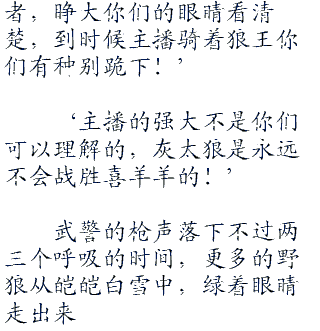 者，睁大你们的眼睛看清
楚，到时候主播骑着狼王你
们有种别跪下！’
‘主播的强大不是你们
可以理解的，灰太狼是永远
不会战胜喜羊羊的！’
武警的枪声落下不过两
三个呼吸的时间，更多的野
狼从皑皑白雪中，绿着眼睛
走出来